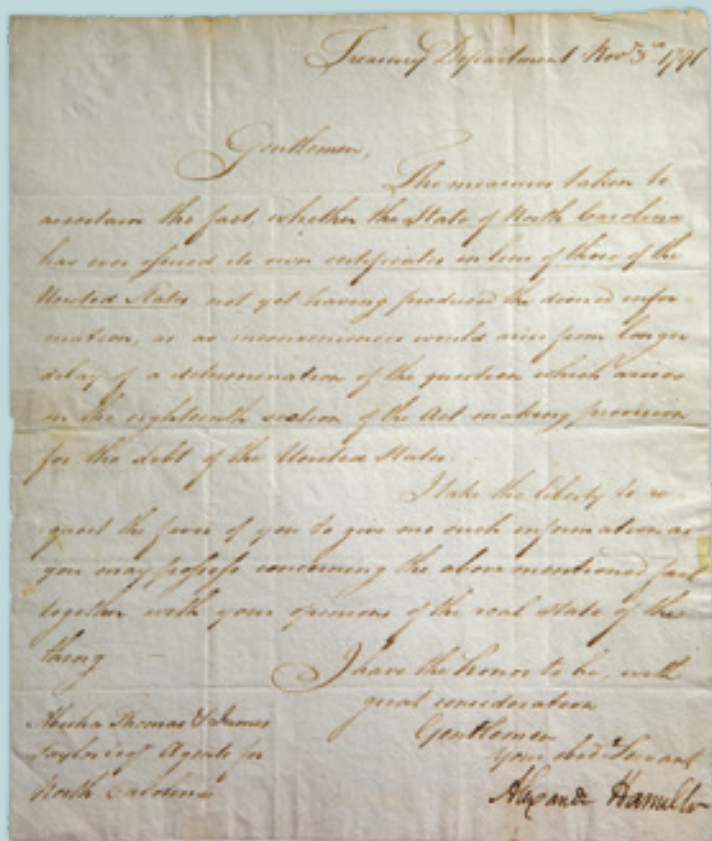 Treasury Department Nov 3rd 1791
Gentlemen,
The measures taken to
ascertain the fact, whether the State of North Carolina
has ever issued its own certificates in lieu of those of the
United States not yet having produced the desired infor-
mation, as as inconveniences would arise from longer
delay of a determination of the question which arises
on the eighteenth section of the Act making provision
for the debt of the United States.
I take the liberty to re-
quest the favor of you to give me such information as
you may possess concerning the above mentioned fact
together with your opinions of the real state of the
thing
I have the honor to be, with
great consideration
Gentlemen
Your obed Servant
Alexander Hamilton
Abisha Thomas & James
Taylor Agents for
North Carolina